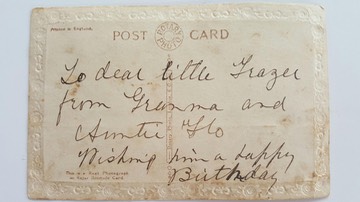 Printed in England.
POST CARD
ROTARY PHOTO
To dear little Frazer
from Granma and
Auntie Flo
Wishing him a happy
Birthday
This is a Real Photograph